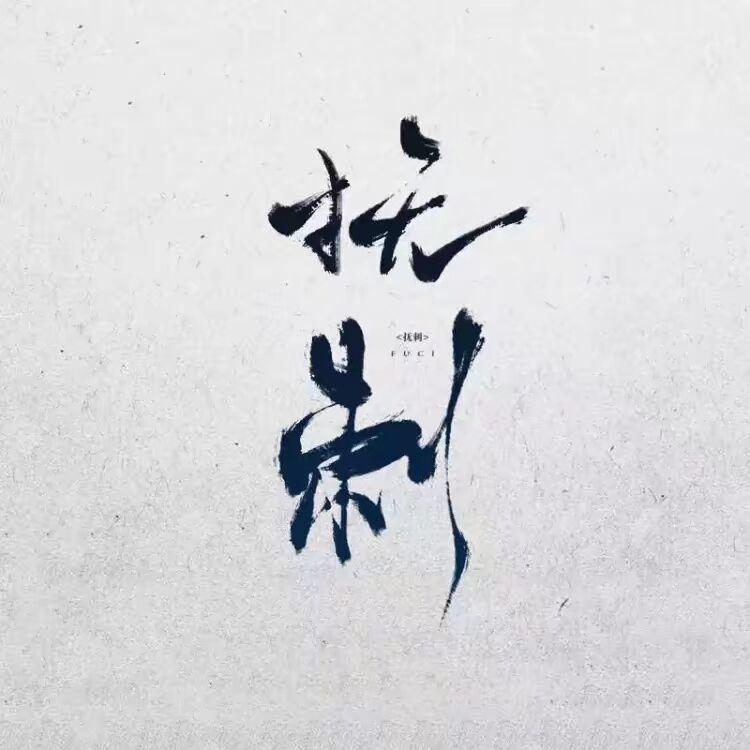 抚
刺
<抚刺>
FUCI